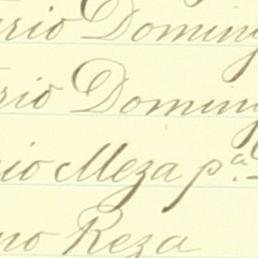 rio Doming
rio Doming
io Meza pª.
no Reza